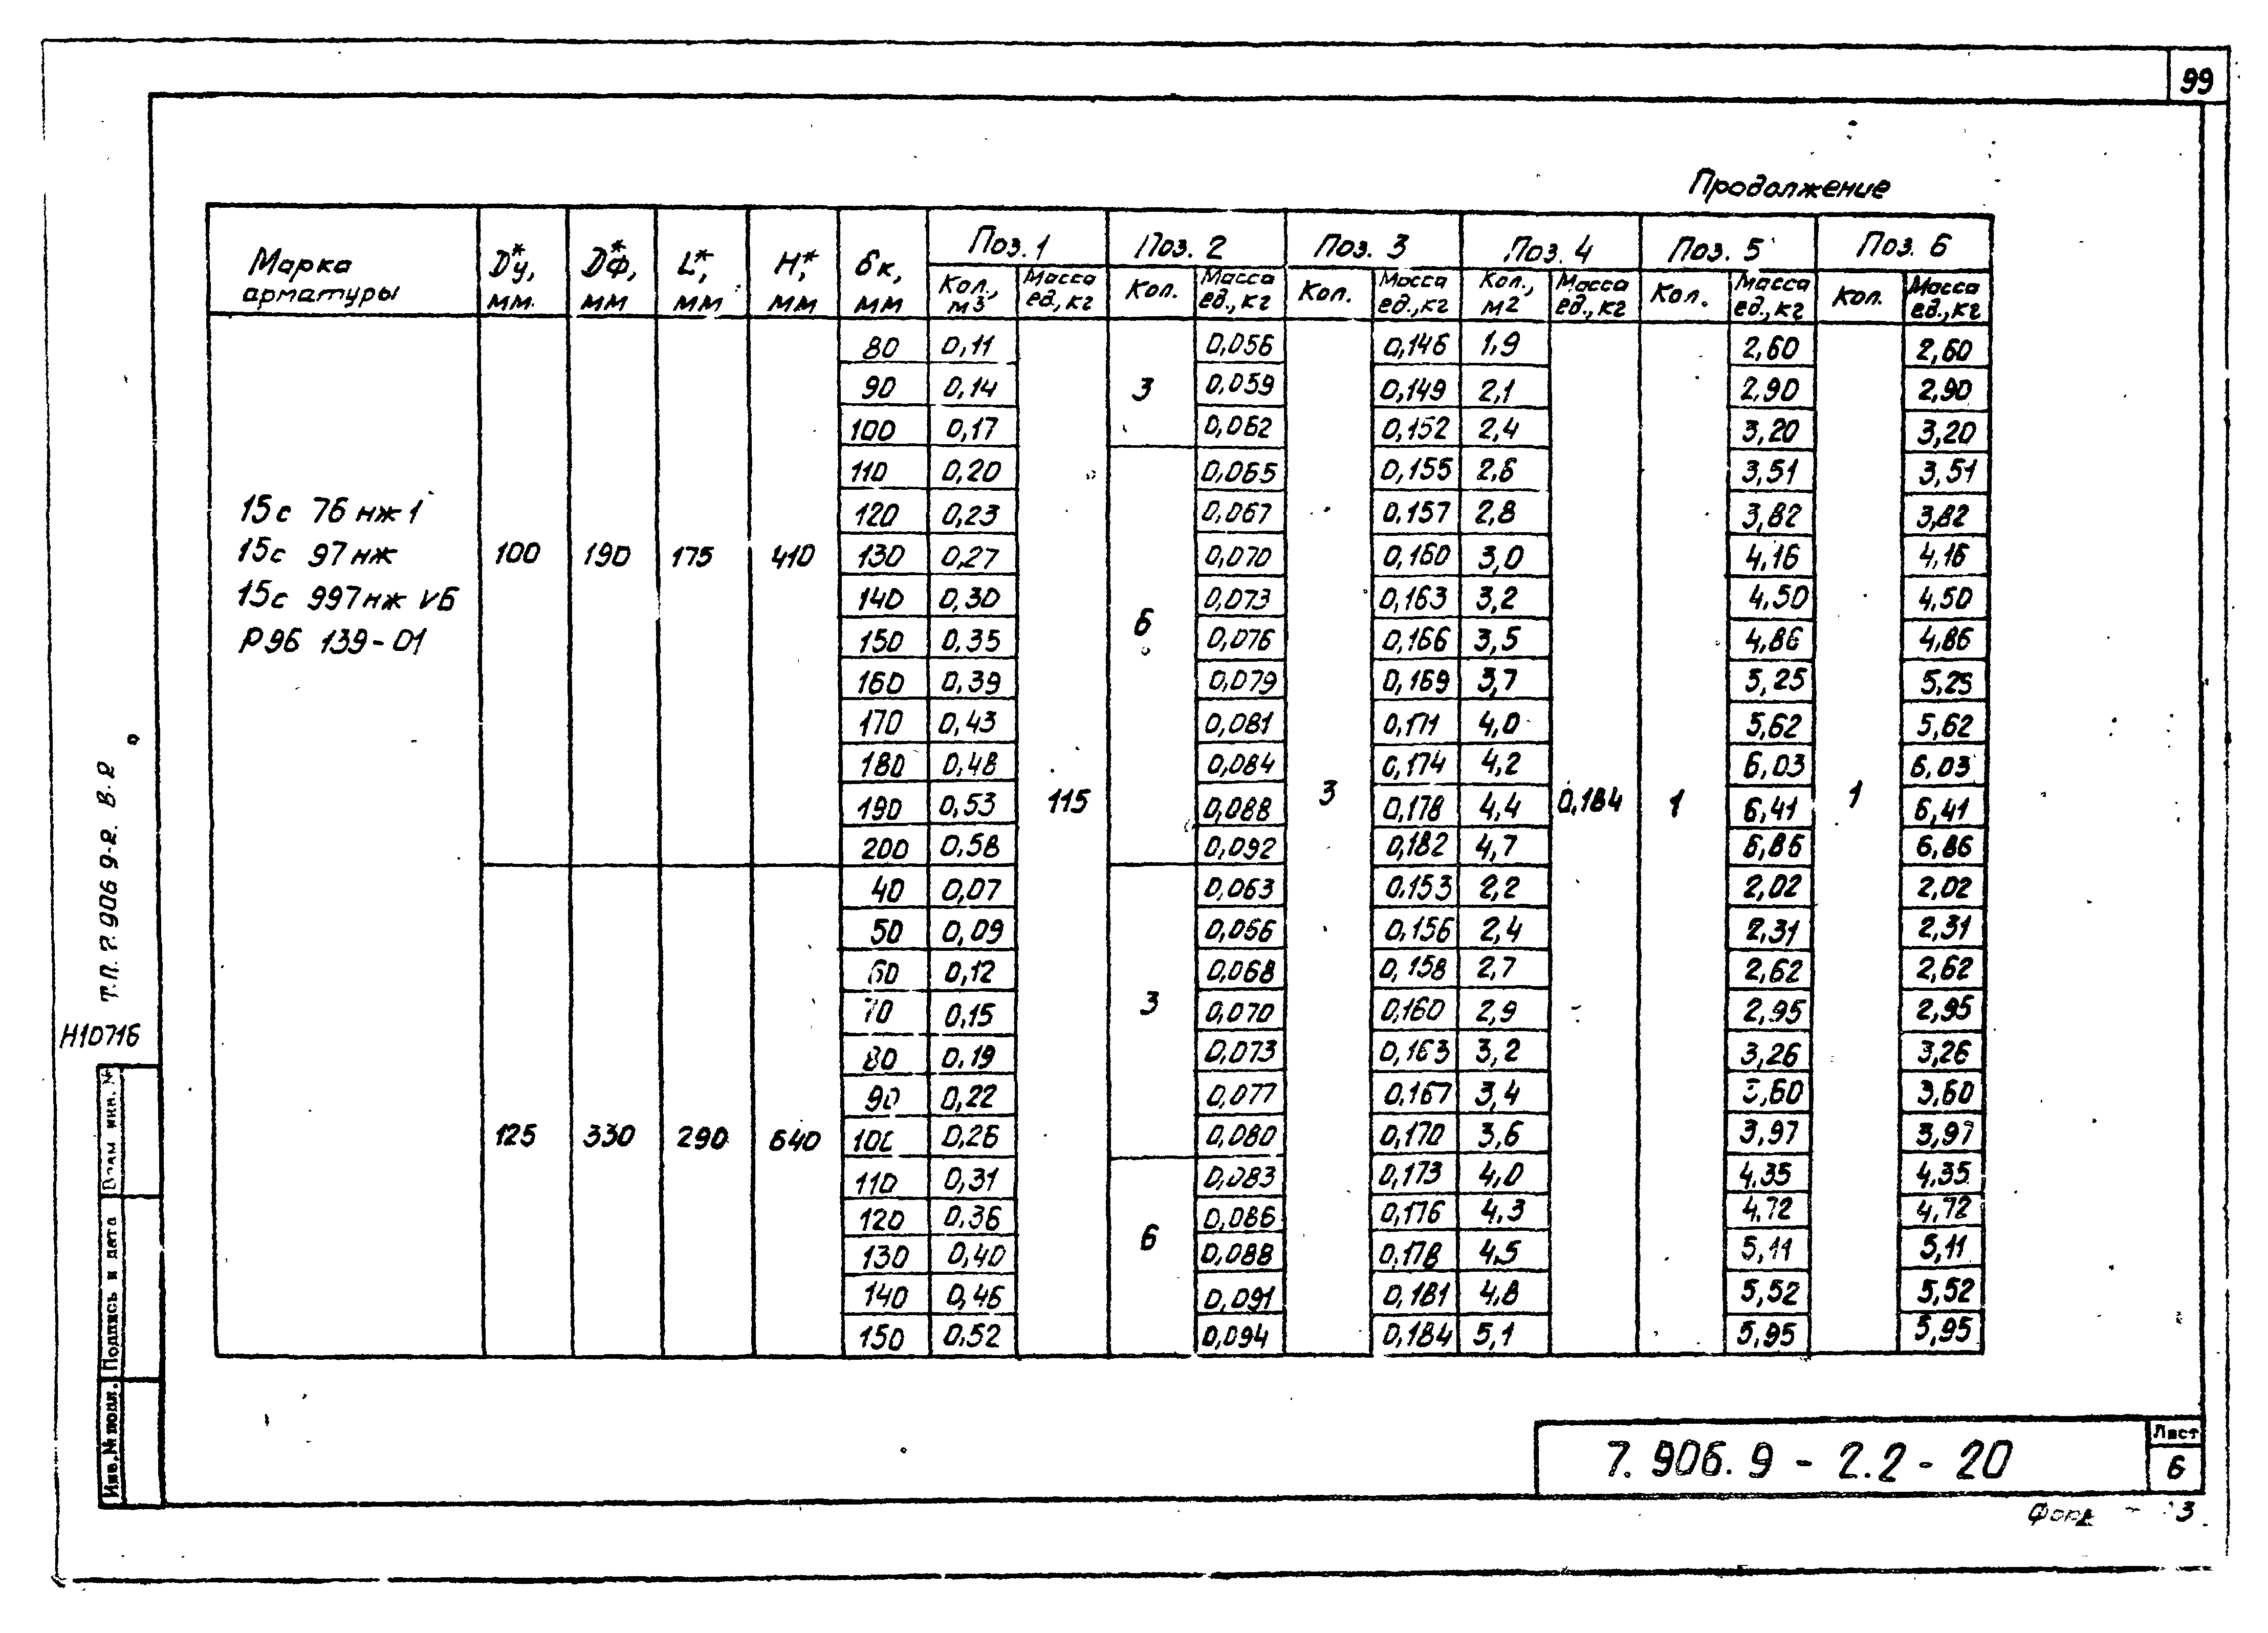 99
Продолжение
Марка арматуры | Dу*, мм | Dф*, мм | L*, мм | H*, мм | бк, мм | Поз. 1 | Поз. 2 | Поз. 3 | Поз. 4 | Поз. 5 | Поз. 6
Кол., м3 | Масса ед., кг | Кол. | Масса ед., кг | Кол. | Масса ед., кг | Кол., м2 | Масса ед., кг | Кол. | Масса ед., кг | Кол. | Масса ед., кг
15с 76 нж 1
15с 97 нж
15с 997 нж VБ
Р 96 139-01
100 | 190 | 175 | 410
115 | 3 | 0,184 | 1 | 1
3
80 | 0,11 | 0,056 | 0,146 | 1,9 | 2,60 | 2,60
90 | 0,14 | 0,059 | 0,149 | 2,1 | 2,90 | 2,90
100 | 0,17 | 0,062 | 0,152 | 2,4 | 3,20 | 3,20
6
110 | 0,20 | 0,065 | 0,155 | 2,6 | 3,51 | 3,51
120 | 0,23 | 0,067 | 0,157 | 2,8 | 3,82 | 3,82
130 | 0,27 | 0,070 | 0,160 | 3,0 | 4,16 | 4,16
140 | 0,30 | 0,073 | 0,163 | 3,2 | 4,50 | 4,50
150 | 0,35 | 0,076 | 0,166 | 3,5 | 4,86 | 4,86
160 | 0,39 | 0,079 | 0,169 | 3,7 | 5,25 | 5,25
170 | 0,43 | 0,081 | 0,171 | 4,0 | 5,62 | 5,62
180 | 0,48 | 0,084 | 0,174 | 4,2 | 6,03 | 6,03
190 | 0,53 | 0,088 | 0,178 | 4,4 | 6,41 | 6,41
200 | 0,58 | 0,092 | 0,182 | 4,7 | 6,86 | 6,86
125 | 330 | 290 | 640
3
40 | 0,07 | 0,063 | 0,153 | 2,2 | 2,02 | 2,02
50 | 0,09 | 0,066 | 0,156 | 2,4 | 2,31 | 2,31
60 | 0,12 | 0,068 | 0,158 | 2,7 | 2,62 | 2,62
70 | 0,15 | 0,070 | 0,160 | 2,9 | 2,95 | 2,95
80 | 0,19 | 0,073 | 0,163 | 3,2 | 3,26 | 3,26
90 | 0,22 | 0,077 | 0,167 | 3,4 | 3,60 | 3,60
100 | 0,26 | 0,080 | 0,170 | 3,6 | 3,97 | 3,97
6
110 | 0,31 | 0,083 | 0,173 | 4,0 | 4,35 | 4,35
120 | 0,36 | 0,086 | 0,176 | 4,3 | 4,72 | 4,72
130 | 0,40 | 0,088 | 0,178 | 4,5 | 5,11 | 5,11
140 | 0,46 | 0,091 | 0,181 | 4,8 | 5,52 | 5,52
150 | 0,52 | 0,094 | 0,184 | 5,1 | 5,95 | 5,95
Т.П. 7.906 9-2. В.2
Н10716
Взам инв. №
Подпись и дата
Инв. № подл.
7.906.9-2.2-20
Лист
6
3